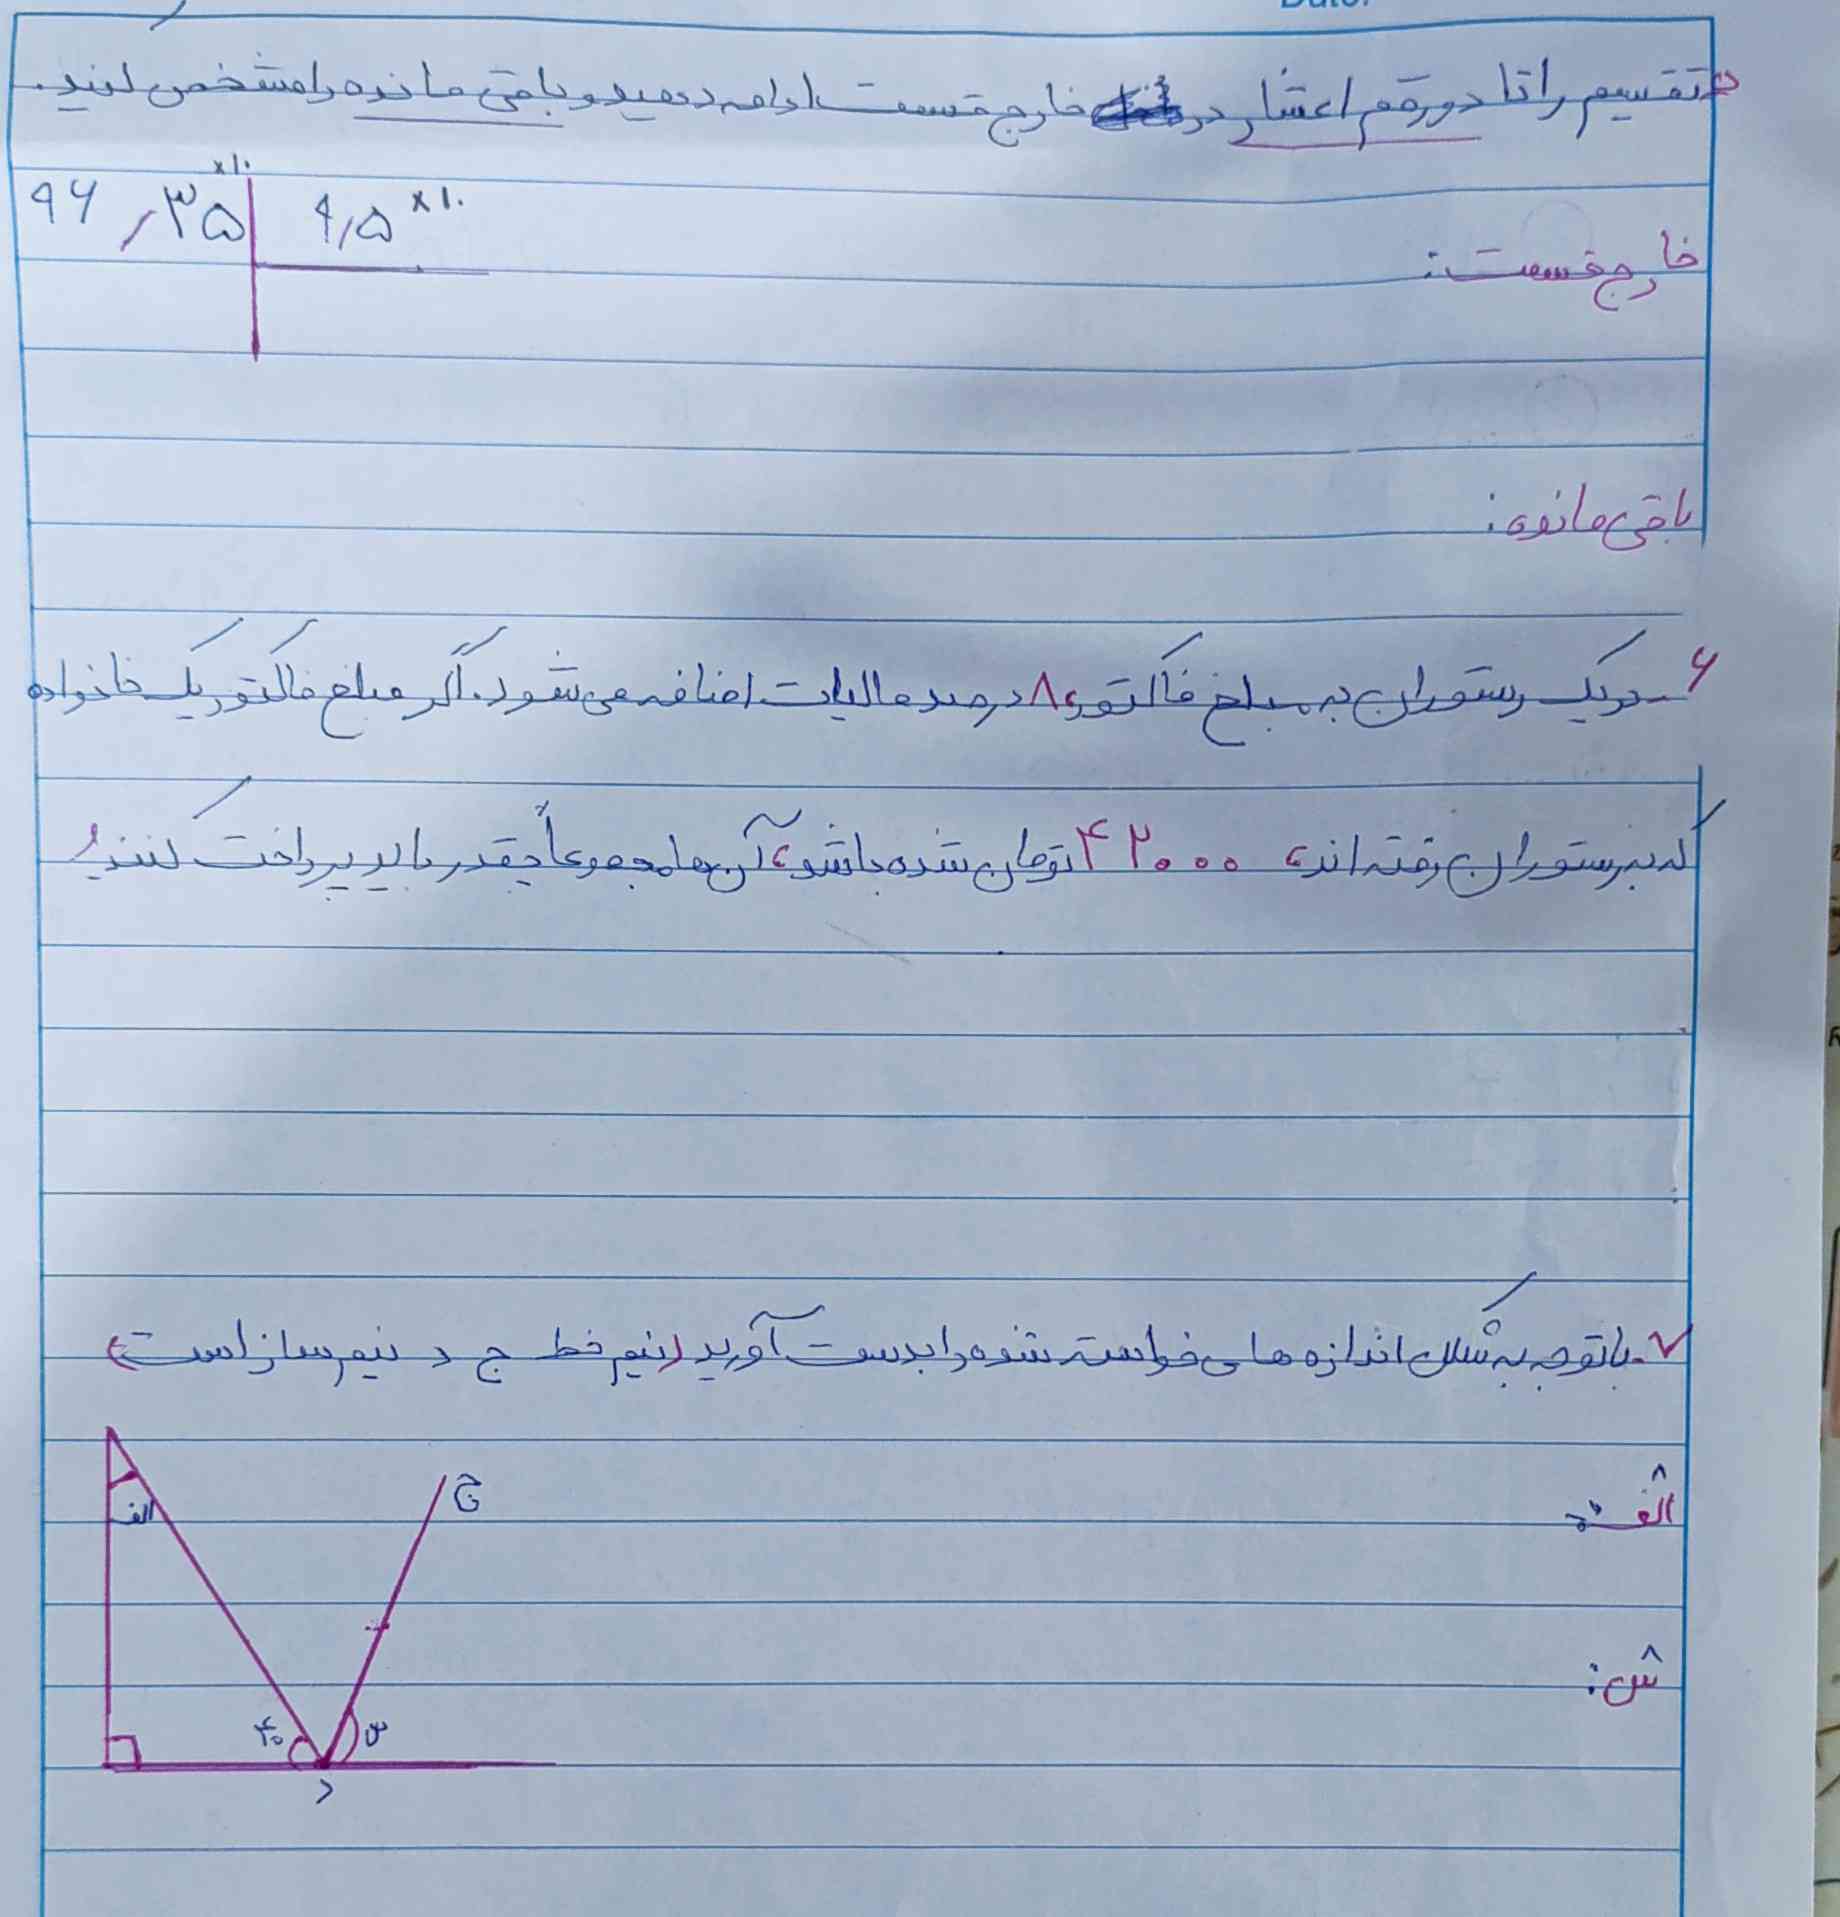 ۵ تقسیم را تا دو رقم اعشار در خارج قسمت ادامه دهید و باقی مانده را مشخص کنید.
۹۶٫۳۵ ×۱۰ ۹٫۵ ×۱۰
خارج قسمت:
باقی مانده:
۶ـ در یک رستوران به مبلغ فاکتور، ۸ درصد مالیات اضافه می شود. اگر مبلغ فاکتور یک خانواده
که به رستوران رفته اند، ۴۲۰۰۰ تومان شده باشد، آن ها مجموعاً چقدر باید پرداخت کنند؟
۷ـ با توجه به شکل اندازه های خواسته شده را بدست آورید (نیم خط ج د نیم ساز است)
ج
الف
الف:
ش:
۴۰ ش
د